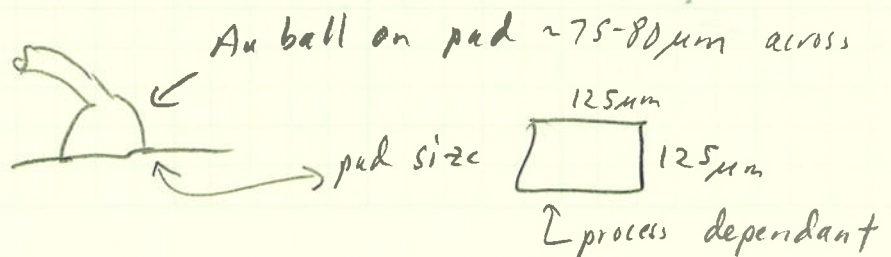 Au ball on pad ~75-80μm across
125μm
pad size
125μm
process dependant